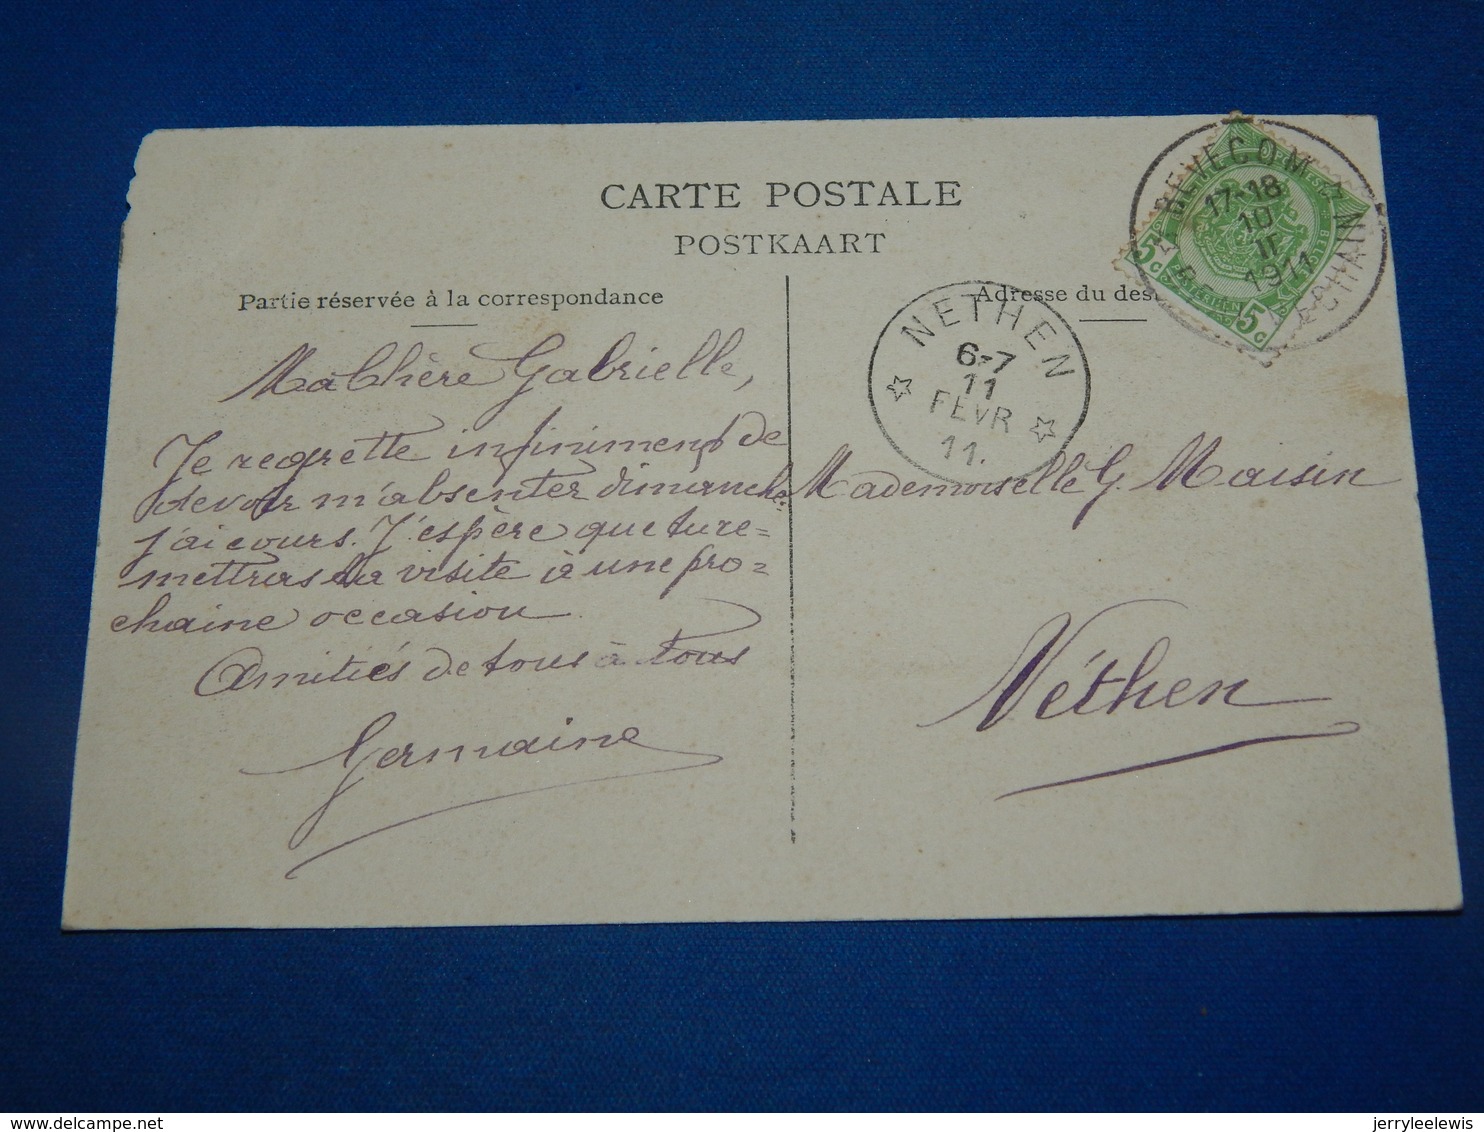 CARTE POSTALE
POSTKAART
Partie réservée à la correspondance
Ma Chère Gabrielle,
Je regrette infiniment de
devoir m'absenter dimanche,
j'ai cours. J'espère que tu re=
mettras ta visite à une pro=
chaine occasion
Amitiés de tous à tous
Germaine
Adresse du dest
NETHEN
6-7
11
FEVR
11.
BEVECOM
17-18
10
II
1911
5c
5c
Mademoiselle G. Maisin
Néthen
delcampe.net
jerryleelewis